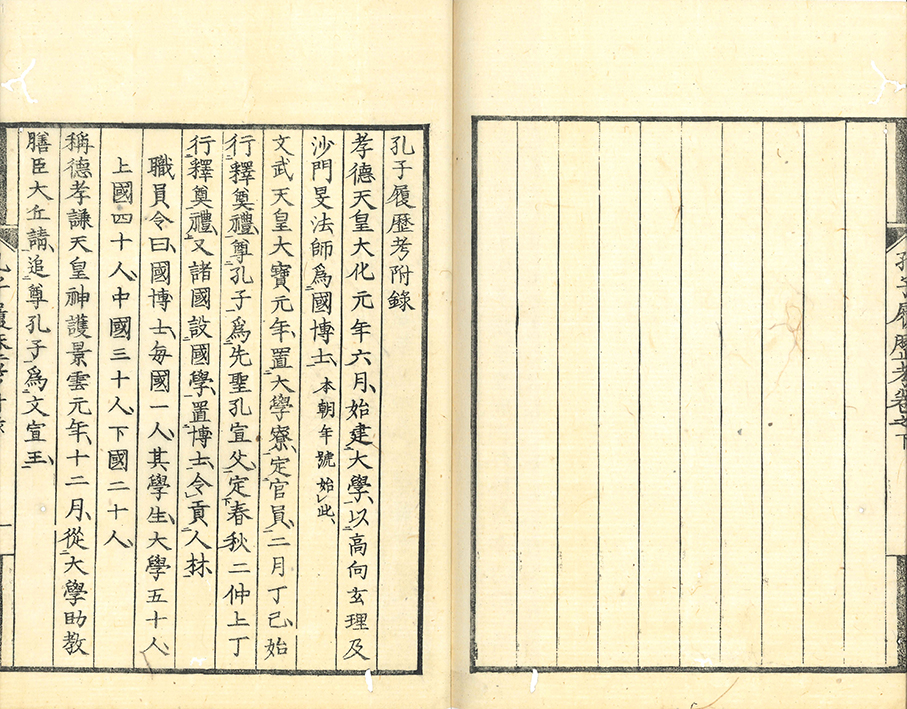 孔子履歷考卷之下
孔子履歷考附錄
孝德天皇大化元年六月、始建大學、以高向玄理及
沙門旻法師爲國博士、本朝年號始此、
文武天皇大寶元年、置大學寮、定官員、二月丁巳、始
行釋奠禮、尊孔子爲先聖孔宣父、定春秋二仲上丁
行釋奠禮、又諸國設國學、置博士、令貢人材
職員令曰、國博士、每國一人、其學生、大學五十人、
上國四十人、中國三十人、下國二十人、
稱德孝謙天皇神護景雲元年、十二月、從大學助教
膳臣大丘請、追尊孔子爲文宣王、